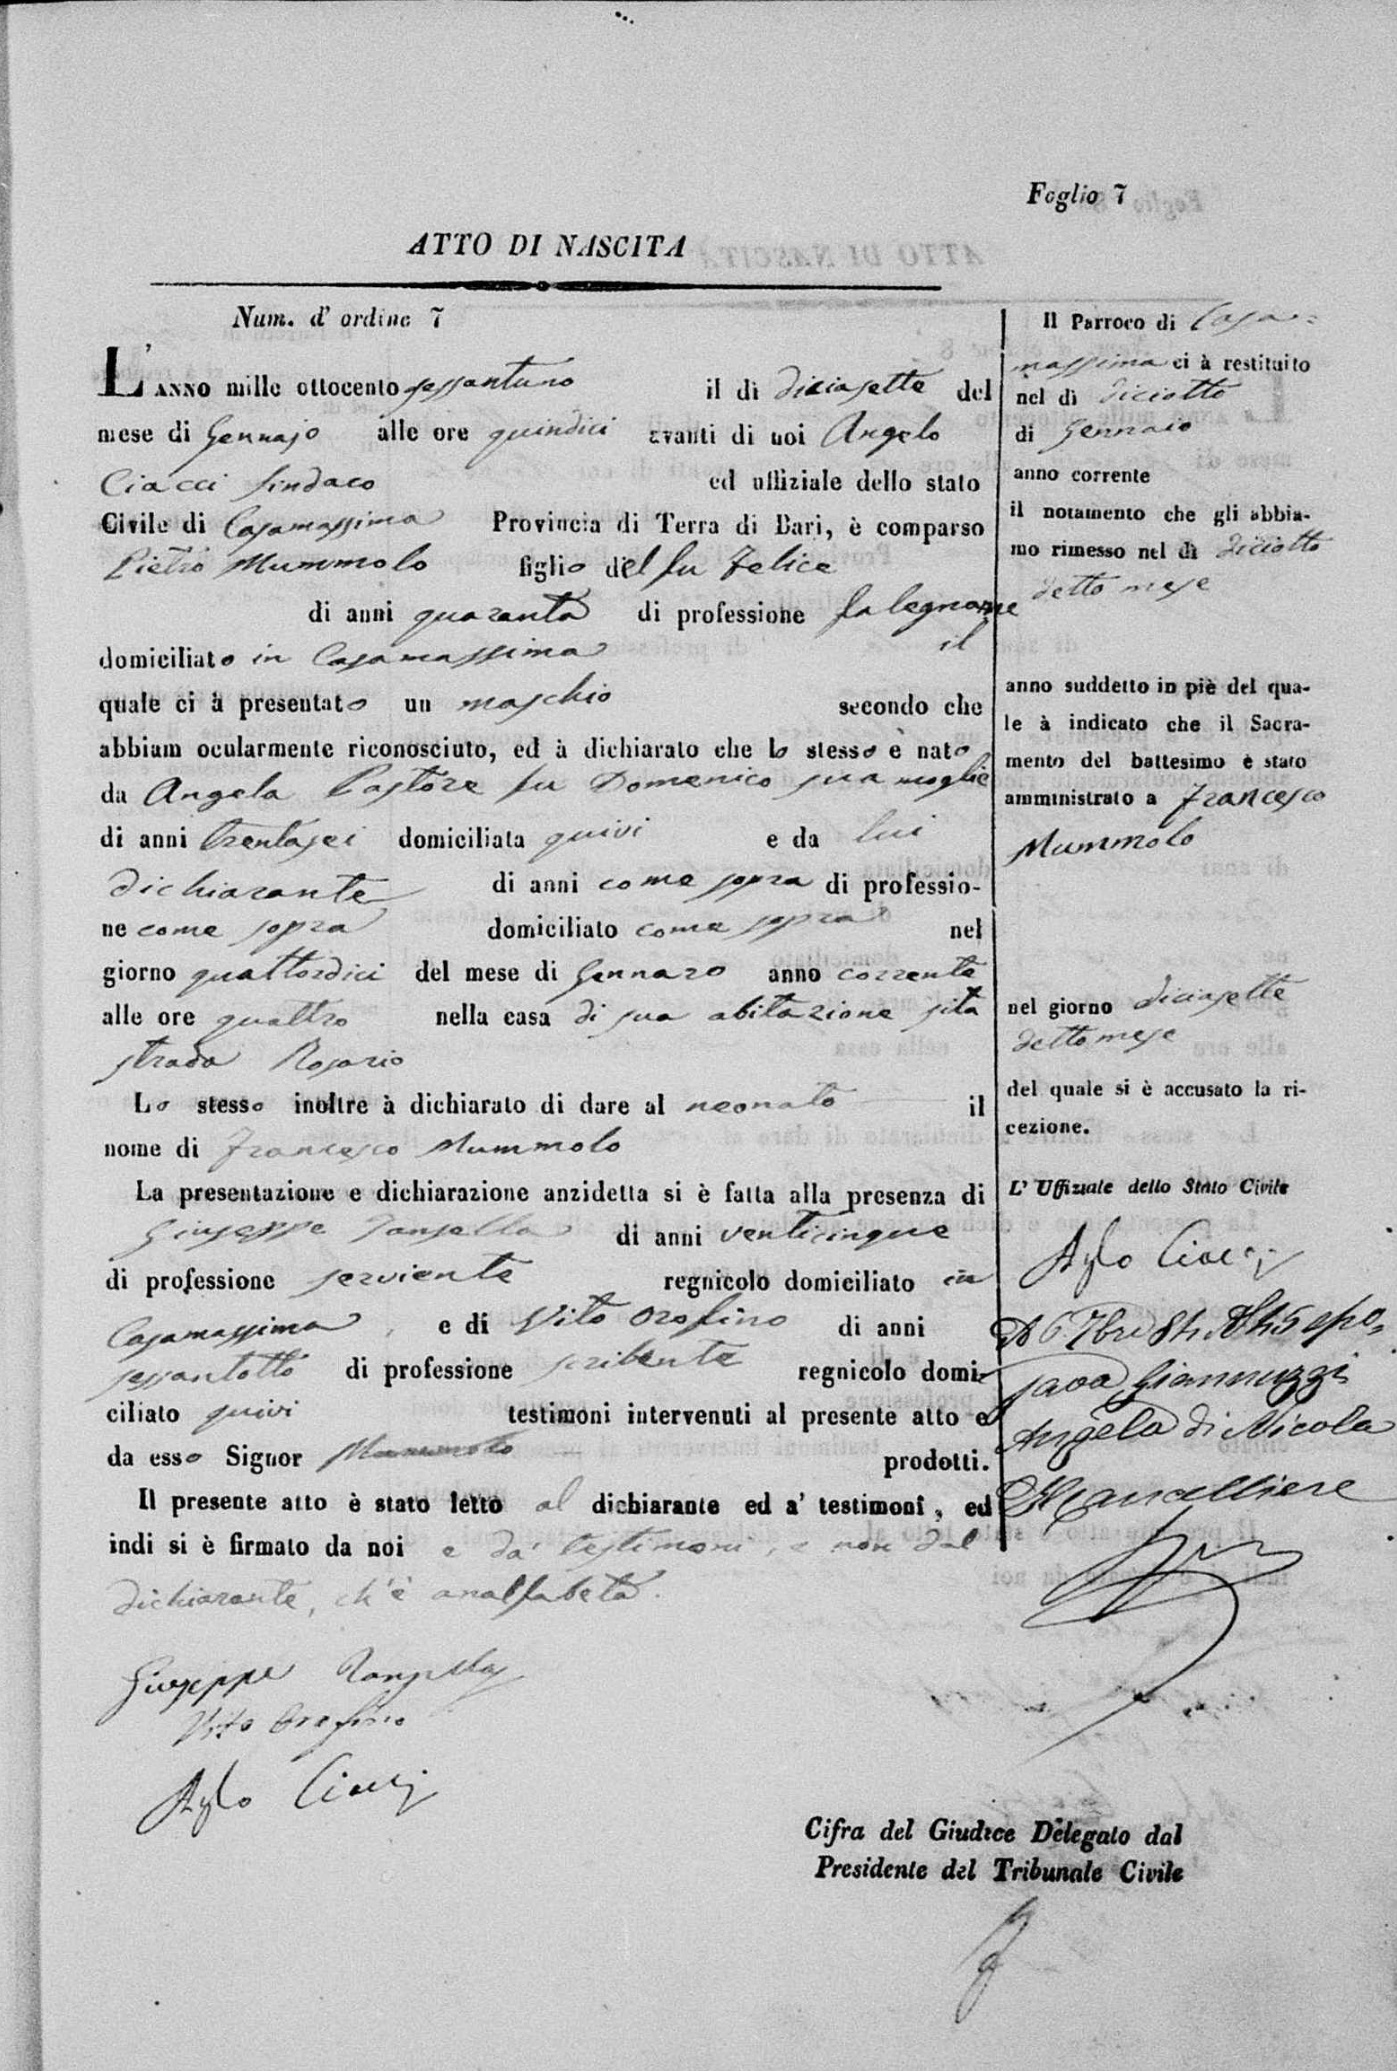 Foglio 7
ATTO DI NASCITA
Num. d' ordine 7
L'ANNO mille ottocento sessantuno il dì diciasette del
mese di Gennajo alle ore quindici avanti di noi Angelo
Ciacci Sindaco ed uffiziale dello stato
Civile di Casamassima Provincia di Terra di Bari, è comparso
Pietro Mummolo figlio del fu Felice
di anni quaranta di professione falegname
domiciliato in Casamassima il
quale ci à presentato un maschio secondo che
abbiam ocularmente riconosciuto, ed à dichiarato che lo stesso è nato
da Angela Pastore fu Domenico sua moglie
di anni trentasei domiciliata quivi e da lui
dichiarante di anni come sopra di professio-
ne come sopra domiciliato come sopra nel
giorno quattordici del mese di Gennaro anno corrente
alle ore quattro nella casa di sua abitazione sita
strada Rosario
Lo stesso inoltre à dichiarato di dare al neonato il
nome di Francesco Mummolo
La presentazione e dichiarazione anzidetta si è fatta alla presenza di
Giuseppe di anni venticinque
di professione serviente regnicolo domiciliato in
Casamassima, e di Vito Orofino di anni
sessantotto di professione scribente regnicolo domi-
ciliato quivi testimoni intervenuti al presente atto e
da esso Signor Mummolo prodotti.
Il presente atto è stato letto al dichiarante ed a' testimonî, ed
indi si è firmato da noi e da' testimoni, e non dal
dichiarante, ch'è analfabeta.
Giuseppe
Vito Orofino
Aglo Ciacci
Il Parroco di Casa=
massima ci à restituito
nel dì diciotto
di Gennaio
anno corrente
il notamento che gli abbia-
mo rimesso nel dì diciotto
detto mese
anno suddetto in piè del qua-
le à indicato che il Sacra-
mento del battesimo è stato
amministrato a Francesco
Mummolo
nel giorno diciasette
detto mese
del quale si è accusato la ri-
cezione.
L' Uffiziale dello Stato Civile
Aglo Ciacci
A 6 7bre spo=
sava Giannuzzi
Angela di Nicola
Il Cancelliere
Cifra del Giudice Delegato dal
Presidente del Tribunale Civile